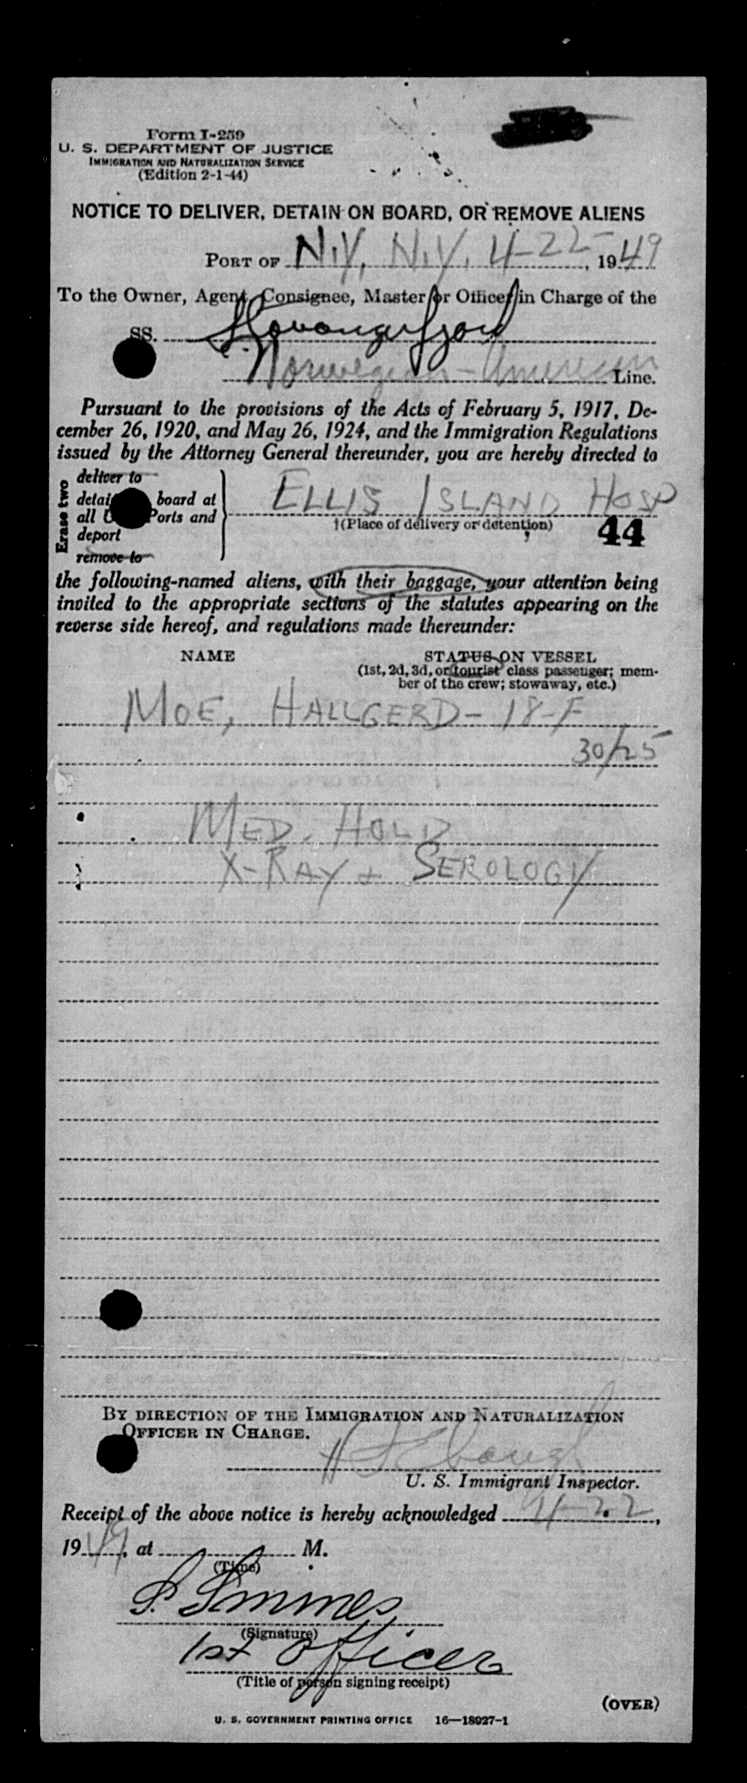 Form I-259
U. S. DEPARTMENT OF JUSTICE
IMMIGRATION AND NATURALIZATION SERVICE
(Edition 2-1-44)
NOTICE TO DELIVER, DETAIN ON BOARD, OR REMOVE ALIENS
PORT OF N.Y. N.Y. 4-22-, 1949
To the Owner, Agent, Consignee, Master or Officer in Charge of the
SS. Stavangerfjord
Norwegian-American Line.
Pursuant to the provisions of the Acts of February 5, 1917, De-
cember 26, 1920, and May 26, 1924, and the Immigration Regulations
issued by the Attorney General thereunder, you are hereby directed to
Erase two
deliver to
detain board at
all Ports and
deport
remove to
ELLIS ISLAND HOSP
†(Place of delivery or detention)
44
the following-named aliens, with their baggage, your attention being
invited to the appropriate sections of the statutes appearing on the
reverse side hereof, and regulations made thereunder:
NAME STATUS ON VESSEL
(1st, 2d, 3d, or tourist class passenger; mem-
ber of the crew; stowaway, etc.)
MOE, HALLGERD- 18-F
30/25
MED. HOLD
X-RAY + SEROLOGY
BY DIRECTION OF THE IMMIGRATION AND NATURALIZATION
OFFICER IN CHARGE.
U. S. Immigrant Inspector.
Receipt of the above notice is hereby acknowledged 4-22,
1949, at M.
(Time)
(Signature)
1st Officer
(Title of person signing receipt)
(OVER)
U. S. GOVERNMENT PRINTING OFFICE 16—18027-1